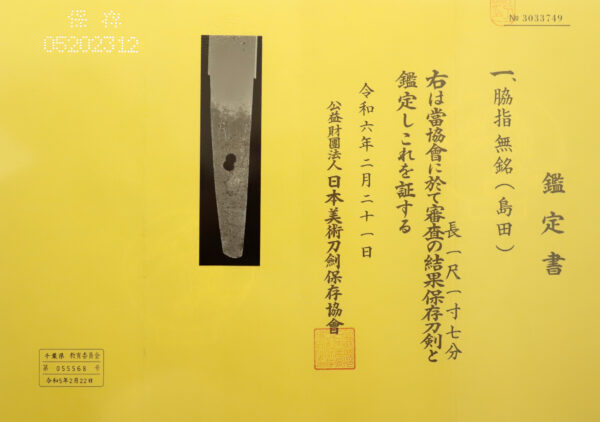 № 3033749
鑑定書
一、脇指無銘(島田)
長一尺一寸七分
右は當協會に於て審査の結果保存刀剣と
鑑定しこれを証する
令和六年二月二十一日
公益財團法人日本美術刀劍保存協會
保存
05202312
千葉県 教育委員会
第 055568 号
令和5年2月22日